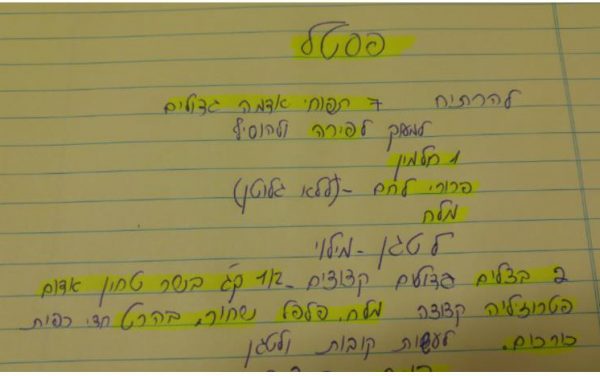 פסטל
להרתיח 7 תפוחי אדמה גדולים
למעוך לפירה ולהוסיף
1 חלמון
פרורי לחם - (ללא גלוטן)
מלח
לטגן - מילוי
2 בצלים גדולים קצוצים - 1/2 קג בשר טחון אדום
פטרוזיליה קצוצה מלח, פלפל שחור, בהרט חצי כפית
כורכום. לעשות קובות ולטגן